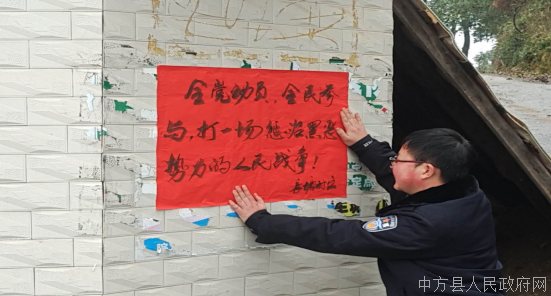 全党动员，全民参
与，打一场惩治黑恶
势力的人民战争！
中方县人民政府网